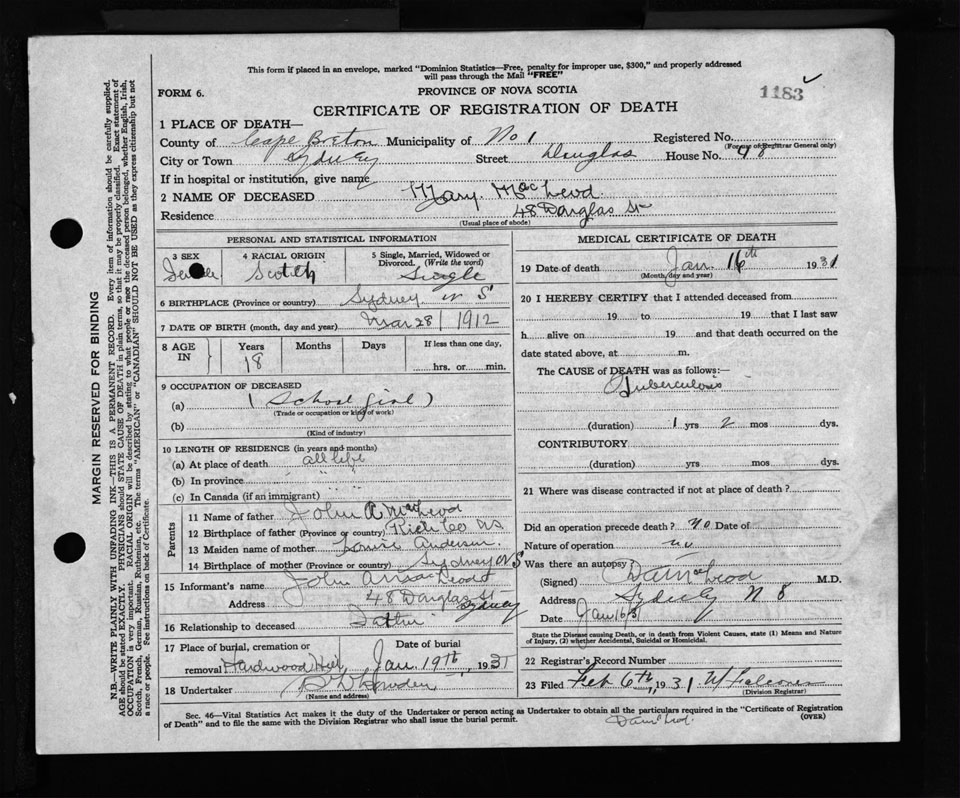 This form if placed in an envelope, marked "Dominion Statistics—Free, penalty for improper use, $300," and properly addressed
will pass through the Mail "FREE"
FORM 6.
PROVINCE OF NOVA SCOTIA
1183
CERTIFICATE OF REGISTRATION OF DEATH
1 PLACE OF DEATH—
County of Cape Breton Municipality of No 1 Registered No.
(For use of Registrar General only)
City or Town Sydney Street Douglas House No. 48
If in hospital or institution, give name
2 NAME OF DECEASED Mary MacLeod
Residence 48 Douglas St
(Usual place of abode)
PERSONAL AND STATISTICAL INFORMATION
3 SEX 4 RACIAL ORIGIN 5 Single, Married, Widowed or Divorced. (Write the word)
Female Scotch Single
6 BIRTHPLACE (Province or country) Sydney N S
7 DATE OF BIRTH (month, day and year) Mar 28 1912
8 AGE IN Years Months Days If less than one day,
18 hrs. or min.
9 OCCUPATION OF DECEASED
(a) (School girl)
(Trade or occupation or kind of work)
(b)
(Kind of industry)
10 LENGTH OF RESIDENCE (in years and months)
(a) At place of death all life
(b) In province " "
(c) In Canada (if an immigrant)
Parents
11 Name of father John A MacLeod
12 Birthplace of father (Province or country) Rich Co NS
13 Maiden name of mother Louise Anderson
14 Birthplace of mother (Province or country) Sydney N S
15 Informant's name John A MacLeod
Address 48 Douglas St Sydney
16 Relationship to deceased Father
17 Place of burial, cremation or removal Hardwood Hill Date of burial Jan. 19th, 1931
18 Undertaker
(Name and address)
MEDICAL CERTIFICATE OF DEATH
19 Date of death Jan. 16th 1931
(Month, day and year)
20 I HEREBY CERTIFY that I attended deceased from
19 to 19 that I last saw
h alive on 19 and that death occurred on the
date stated above, at m.
The CAUSE OF DEATH was as follows:—
Tuberculosis
(duration) 1 yrs 2 mos dys.
CONTRIBUTORY
(duration) yrs mos dys.
21 Where was disease contracted if not at place of death?
Did an operation precede death? No Date of
Nature of operation no
Was there an autopsy
(Signed) D A MacLeod M.D.
Address Sydney N S
Date Jan 16/31
State the Disease causing Death, or in death from Violent Causes, state (1) Means and Nature
of Injury, (2) whether Accidental, Suicidal or Homicidal.
22 Registrar's Record Number
23 Filed Feb 6th, 1931 W Falconer
(Division Registrar)
Sec. 46—Vital Statistics Act makes it the duty of the Undertaker or person acting as Undertaker to obtain all the particulars required in the "Certificate of Registration
of Death" and to file the same with the Division Registrar who shall issue the burial permit.
(OVER)
MARGIN RESERVED FOR BINDING
N.B.—WRITE PLAINLY WITH UNFADING INK—THIS IS A PERMANENT RECORD. Every item of information should be carefully supplied.
AGE should be stated EXACTLY. PHYSICIANS should STATE CAUSE OF DEATH in plain terms, so that it may be properly classified. Exact statement of
OCCUPATION is very important. RACIAL ORIGIN will be described by stating to what people or race the deceased person belonged, whether English, Irish,
Scotch, French, German, Russian, Ruthenian, etc. The terms "AMERICAN" or "CANADIAN" SHOULD NOT BE USED as they express citizenship but not
a race or people. See instructions on back of Certificate.